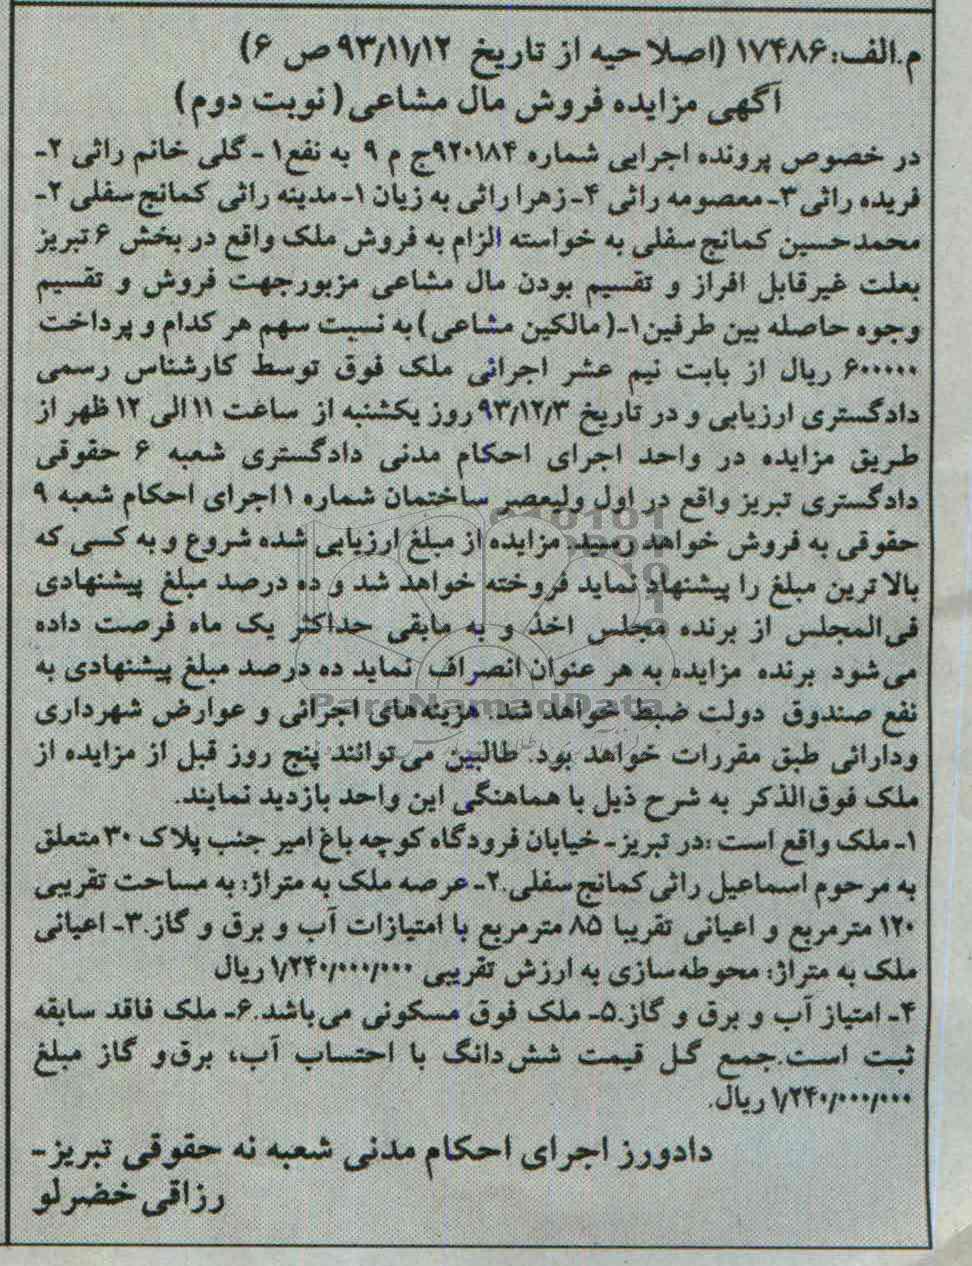 م.الف: ۱۷۴۸۶ (اصلاحیه از تاریخ ۹۳/۱۱/۱۲ ص ۶)
آگهی مزایده فروش مال مشاعی (نوبت دوم)
در خصوص پرونده اجرایی شماره ۹۲۰۱۸۴ج م ۹ به نفع ۱- گلی خانم راثی ۲-
فریده راثی ۳- معصومه راثی ۴- زهرا راثی به زیان ۱- مدینه راثی کمانج سفلی ۲-
محمدحسین کمانج سفلی به خواسته الزام به فروش ملک واقع در بخش ۶ تبریز
بعلت غیرقابل افراز و تقسیم بودن مال مشاعی مزبور جهت فروش و تقسیم
وجوه حاصله بین طرفین ۱-(مالکین مشاعی) به نسبت سهم هر کدام و پرداخت
۶۰۰۰۰۰ ریال از بابت نیم عشر اجرائی ملک فوق توسط کارشناس رسمی
دادگستری ارزیابی و در تاریخ ۹۳/۱۲/۳ روز یکشنبه از ساعت ۱۱ الی ۱۲ ظهر از
طریق مزایده در واحد اجرای احکام مدنی دادگستری شعبه ۶ حقوقی
دادگستری تبریز واقع در اول ولیعصر ساختمان شماره ۱ اجرای احکام شعبه ۹
حقوقی به فروش خواهد رسید. مزایده از مبلغ ارزیابی شده شروع و به کسی که
بالاترین مبلغ را پیشنهاد نماید فروخته خواهد شد و ده درصد مبلغ پیشنهادی
فی المجلس از برنده مجلس اخذ و به مابقی حداکثر یک ماه فرصت داده
می شود برنده مزایده به هر عنوان انصراف نماید ده درصد مبلغ پیشنهادی به
نفع صندوق دولت ضبط خواهد شد. هزینه های اجرائی و عوارض شهرداری
ودارائی طبق مقررات خواهد بود. طالبین می توانند پنج روز قبل از مزایده از
ملک فوق الذکر به شرح ذیل با هماهنگی این واحد بازدید نمایند.
۱- ملک واقع است :در تبریز- خیابان فرودگاه کوچه باغ امیر جنب پلاک ۳۰ متعلق
به مرحوم اسماعیل راثی کمانج سفلی.۲- عرصه ملک به متراژ: به مساحت تقریبی
۱۲۰ مترمربع و اعیانی تقریبا ۸۵ مترمربع با امتیازات آب و برق و گاز.۳- اعیانی
ملک به متراژ: محوطه سازی به ارزش تقریبی ۱/۲۴۰/۰۰۰/۰۰۰ ریال
۴- امتیاز آب و برق و گاز.۵- ملک فوق مسکونی می باشد.۶- ملک فاقد سابقه
ثبت است.جمع گل قیمت شش دانگ با احتساب آب، برق و گاز مبلغ
۱/۲۴۰/۰۰۰/۰۰۰ ریال.
دادورز اجرای احکام مدنی شعبه نه حقوقی تبریز-
رزاقی خضرلو
ParsNamadData